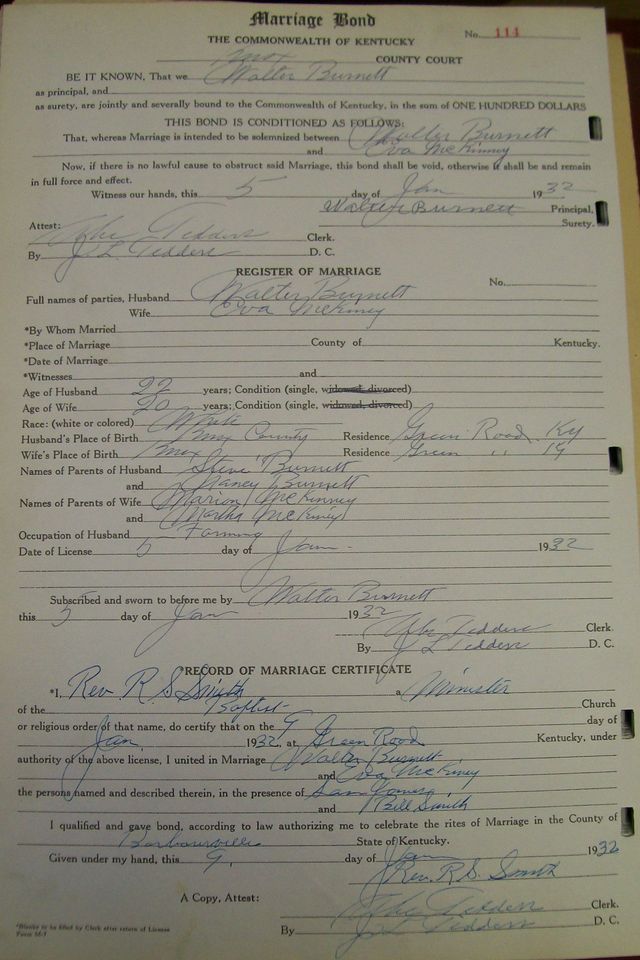 Marriage Bond
THE COMMONWEALTH OF KENTUCKY
No. 114
Knox COUNTY COURT
BE IT KNOWN, That we Walter Burnett
as principal, and
as surety, are jointly and severally bound to the Commonwealth of Kentucky, in the sum of ONE HUNDRED DOLLARS
THIS BOND IS CONDITIONED AS FOLLOWS:
That, whereas Marriage is intended to be solemnized between Walter Burnett
and Eva McKinney
Now, if there is no lawful cause to obstruct said Marriage, this bond shall be void, otherwise it shall be and remain
in full force and effect.
Witness our hands, this 5 day of Jan 1932
Walter Burnett Principal,
Surety.
Attest:
Tedders Clerk.
By J. L. Tedders D. C.
REGISTER OF MARRIAGE
No.
Full names of parties, Husband Walter Burnett
Wife Eva McKiney
*By Whom Married
*Place of Marriage County of Kentucky.
*Date of Marriage
*Witnesses and
Age of Husband 22 years; Condition (single, widowed, divorced)
Age of Wife 20 years; Condition (single, widowed, divorced)
Race: (white or colored) White
Husband's Place of Birth Knox County Residence Green Road Ky
Wife's Place of Birth Knox Residence Green " Ky
Names of Parents of Husband Steve Burnett
and Nancy Burnett
Names of Parents of Wife Marion McKinney
and Martha McKiney
Occupation of Husband Farming
Date of License 5 day of Jan 1932
Subscribed and sworn to before me by Walter Burnett
this 5 day of Jan 1932
Tedders Clerk.
By J L Tedders D. C.
*RECORD OF MARRIAGE CERTIFICATE
*I, Rev. R S Smith a Minister
of the Baptist Church
or religious order of that name, do certify that on the 9 day of
Jan. 1932, at Green Road Kentucky, under
authority of the above license, I united in Marriage Walter Burnett
and Eva McKiney
the persons named and described therein, in the presence of
and Bill Smith
I qualified and gave bond, according to law authorizing me to celebrate the rites of Marriage in the County of
Barbourville State of Kentucky.
Given under my hand, this 9, day of Jan 1932
Rev. R. S. Smith
A Copy, Attest:
Tedders Clerk.
By J L Tedders D. C.
*Blanks to be filled by Clerk after return of License
Form M-1